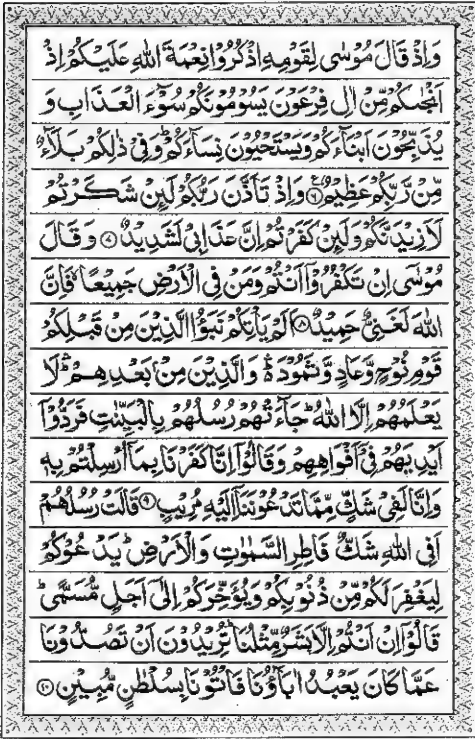 وَاِذْ قَالَ مُوْسٰى لِقَوْمِهِ اذْكُرُوْا نِعْمَةَ اللّٰهِ عَلَيْكُمْ اِذْ
اَنْجٰىكُمْ مِّنْ اٰلِ فِرْعَوْنَ يَسُوْمُوْنَكُمْ سُوْٓءَ الْعَذَابِ وَ
يُذَبِّحُوْنَ اَبْنَآءَكُمْ وَيَسْتَحْيُوْنَ نِسَآءَكُمْ ؕ وَفِيْ ذٰلِكُمْ بَلَآءٌ
مِّنْ رَّبِّكُمْ عَظِيْمٌ ۶ وَاِذْ تَاَذَّنَ رَبُّكُمْ لَئِنْ شَكَرْتُمْ
لَاَزِيْدَنَّكُمْ وَلَئِنْ كَفَرْتُمْ اِنَّ عَذَابِيْ لَشَدِيْدٌ ۷ وَقَالَ
مُوْسٰٓى اِنْ تَكْفُرُوْٓا اَنْتُمْ وَمَنْ فِى الْاَرْضِ جَمِيْعًا ۙ فَاِنَّ
اللّٰهَ لَغَنِيٌّ حَمِيْدٌ ۸ اَلَمْ يَاْتِكُمْ نَبَؤُا الَّذِيْنَ مِنْ قَبْلِكُمْ
قَوْمِ نُوْحٍ وَّعَادٍ وَّثَمُوْدَ ۛؕ وَالَّذِيْنَ مِنْۢ بَعْدِهِمْ ۛؕ لَا
يَعْلَمُهُمْ اِلَّا اللّٰهُ ؕ جَآءَتْهُمْ رُسُلُهُمْ بِالْبَيِّنٰتِ فَرَدُّوْٓا
اَيْدِيَهُمْ فِيْٓ اَفْوَاهِهِمْ وَقَالُوْٓا اِنَّا كَفَرْنَا بِمَآ اُرْسِلْتُمْ بِهٖ
وَاِنَّا لَفِيْ شَكٍّ مِّمَّا تَدْعُوْنَنَآ اِلَيْهِ مُرِيْبٍ ۹ قَالَتْ رُسُلُهُمْ
اَفِى اللّٰهِ شَكٌّ فَاطِرِ السَّمٰوٰتِ وَالْاَرْضِ ؕ يَدْعُوْكُمْ
لِيَغْفِرَ لَكُمْ مِّنْ ذُنُوْبِكُمْ وَيُؤَخِّرَكُمْ اِلٰٓى اَجَلٍ مُّسَمًّى ؕ
قَالُوْٓا اِنْ اَنْتُمْ اِلَّا بَشَرٌ مِّثْلُنَا ؕ تُرِيْدُوْنَ اَنْ تَصُدُّوْنَا
عَمَّا كَانَ يَعْبُدُ اٰبَآؤُنَا فَاْتُوْنَا بِسُلْطٰنٍ مُّبِيْنٍ ۱۰